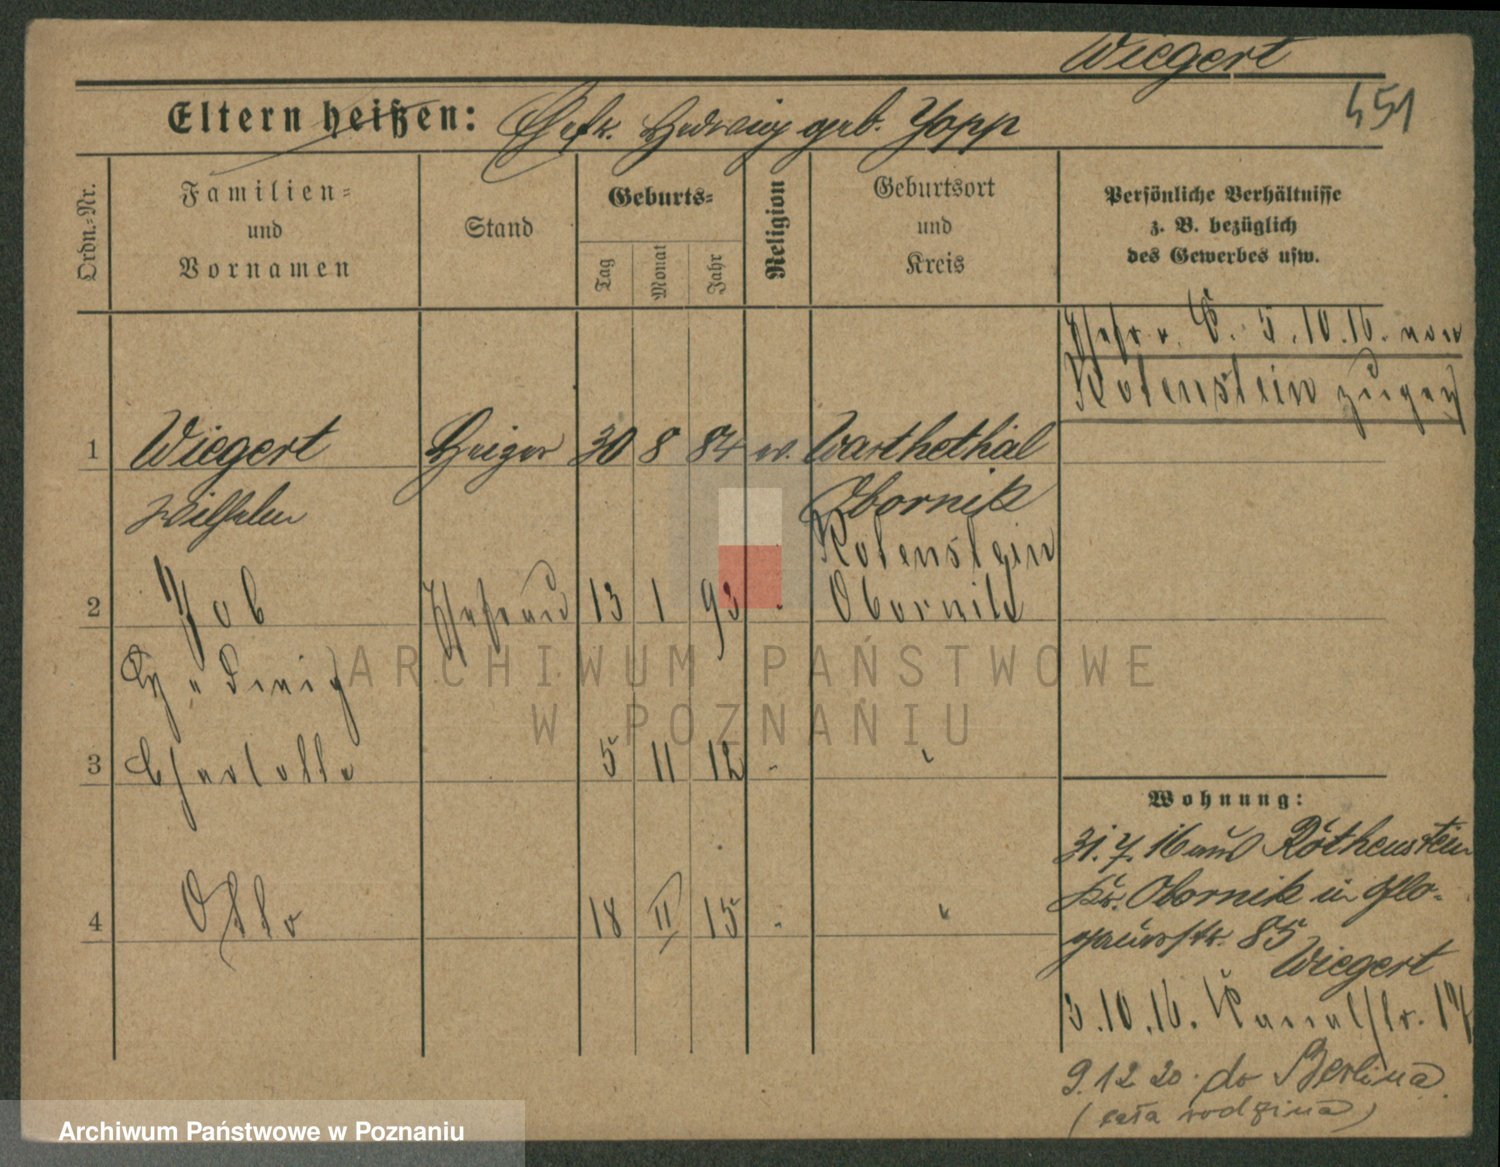 Wiegert
451
Eltern heißen: Ehefr. Hedwig geb. Yopp
Ordn.-Nr.
Familien-
und
Vornamen
Stand
Geburts-
Tag
Monat
Jahr
Religion
Geburtsort
und
Kreis
Persönliche Verhältnisse
z. B. bezüglich
des Gewerbes usw.
Ehefr. u. 5.10.16. von
Rotenstein zugez
1 Wiegert Heizer 30 8 84 ev. Warthethal
Wilhelm Obornik
Rotenstein
2 Ehefrau 13 1 93 Obornik
Hedwig
3 Charlotte 5 11 12
4 Otto 18 II 15
Wohnung:
31.7.16 aus Rothenstein
Kr. Obornik in Glo-
gauerstr. 85
Wiegert
5.10.16. 17
9.12 20. do Berlina
(cała rodzina)
ARCHIWUM PAŃSTWOWE
W POZNANIU
Archiwum Państwowe w Poznaniu